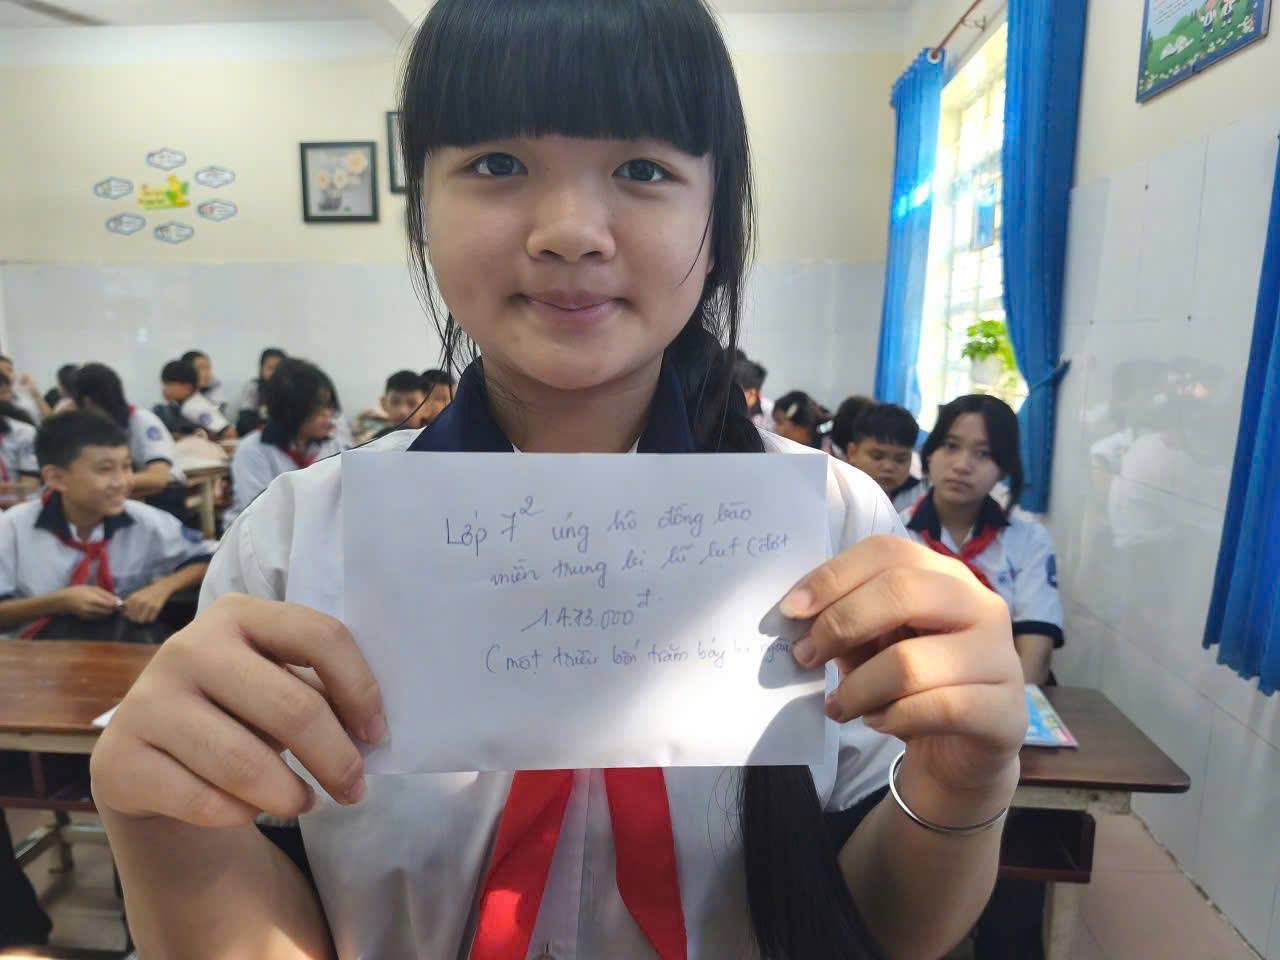 Lớp 7² ủng hộ đồng bão
miền trung bị lũ lụt (đợt
1.473.000đ.
(một triệu bốn trăm bảy ba ngàn